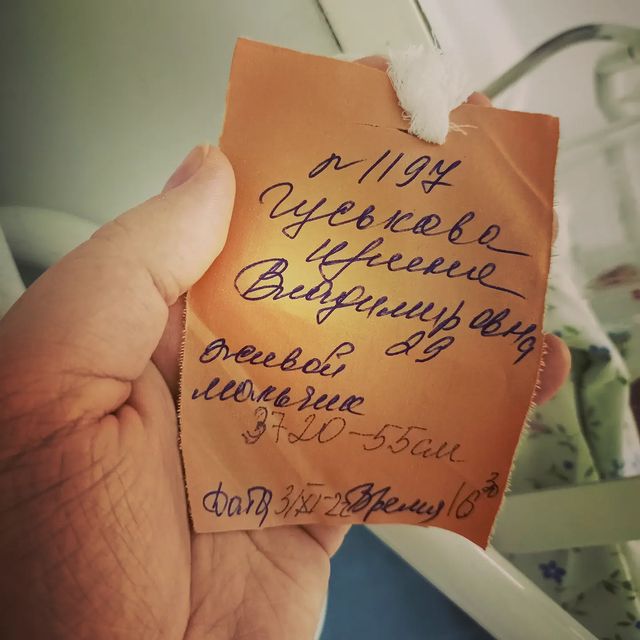 №1197
Гуськова
Ирина
Владимировна
29
живой
мальчик
3720-55см
Дата 3/XI-2 Время 16 30